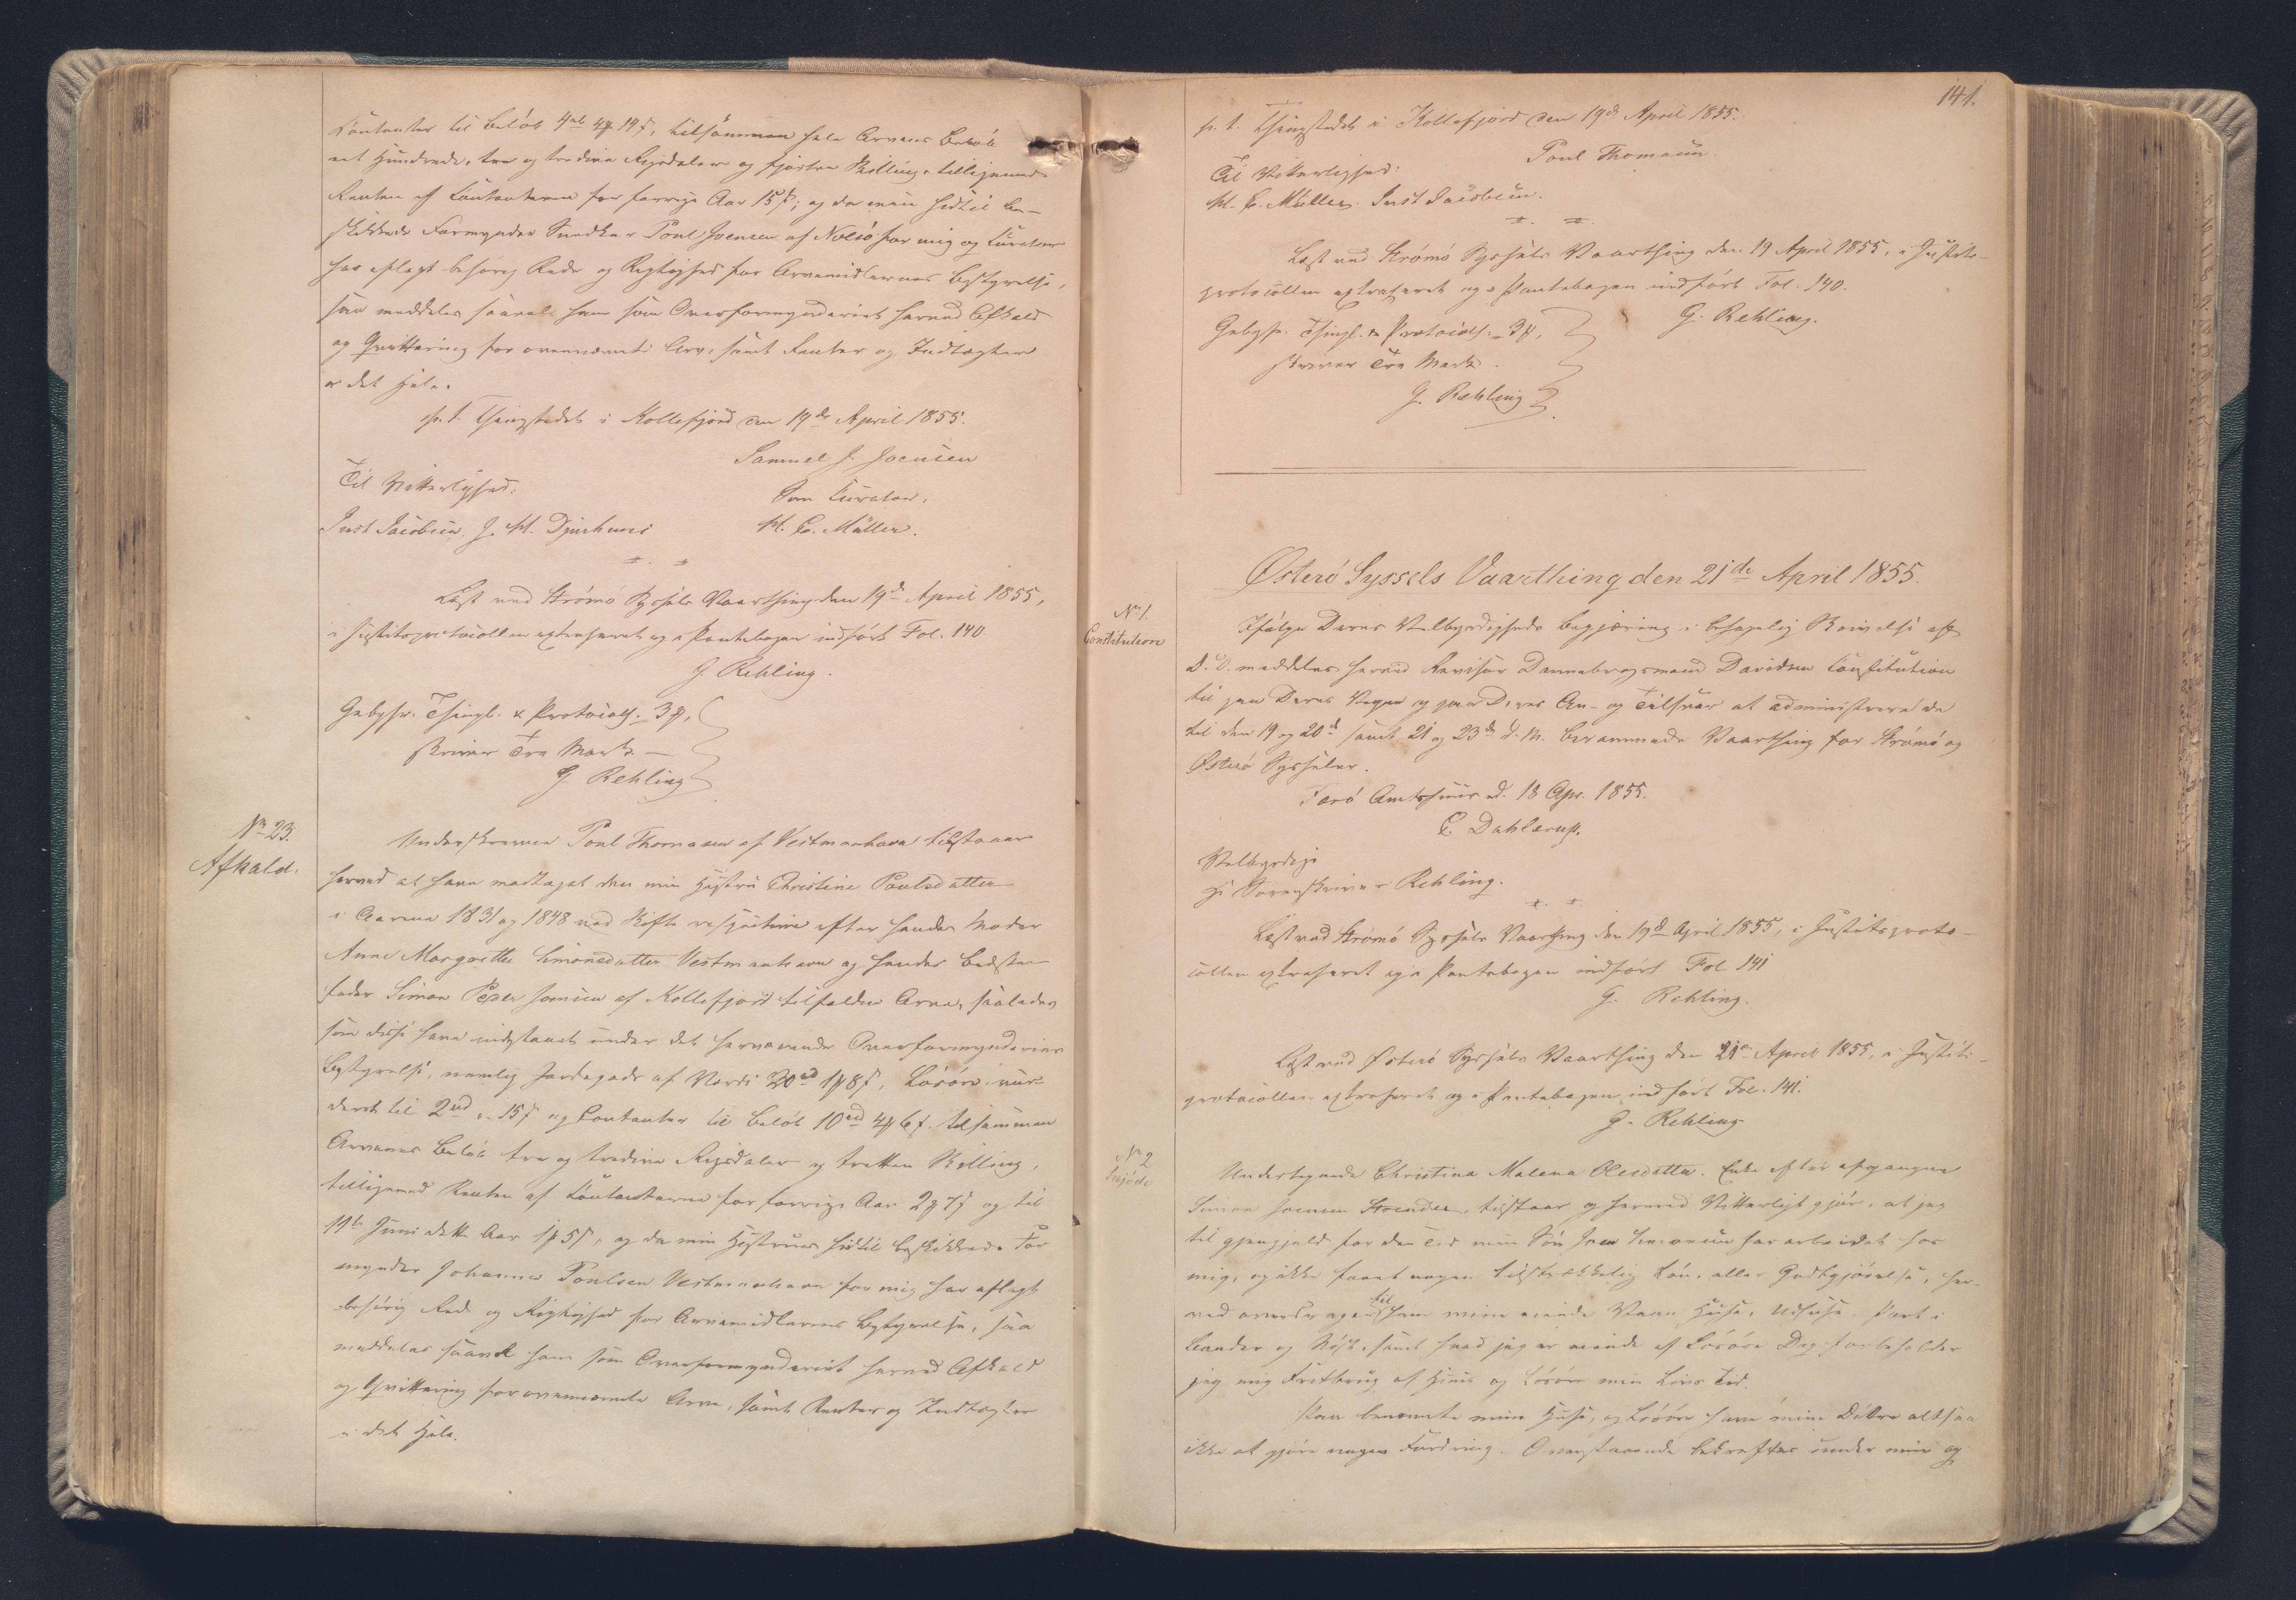 Contanter til Beløb 4rd 4# 14ß, tilsammen hele Arvens Beløb
eet Hundrede, tre og tredive Rigsdaler og fjorten Skilling, tilligemed
Renten af Contanterne for forrige Aar 15ß; og da min hidtil be-
skikkede Formynder Snedker Poul Joensen af Nolsø for mig og Curator
har aflagt behørig Rede og Rigtighed for Arvemidlernes Bestyrelse,
saa meddeles saavel ham som Overformynderiet herved Afkald
og Qvittering for ovennævnte Arv, samt Renter og Indtægter
i det Hele.
p. t. Thingstedet i Kollefjord den 19de April 1855.
Samuel J. Joensen
Til Vitterlighed:
Som Curator,
Just Jacobsen. J. M. Djurhuus
M. C. Müller.
Læst ved Strømø Syssels Vaarthing den 19de April 1855,
i Justitsprotocollen extraheret og i Pantebogen indført Fol. 140
G Rehling.
Gebyhr. Thingl. & Protocoll. 3#,
skriver Tre Mark
G. Rehling
No 23.
Afkald.
Underskrevne Poul Thomasen af Vestmanhavn tilstaaer
herved at have modtaget den min Hustru Christine Poulsdatter
i Aarene 1831 og 1848 ved Skifte respective efter hendes Moder
Anne Margrethe Simonsdatter Vestmanhavn og hendes Bedste-
fader Simon Peder Joensen af Kollefjord tilfaldne Arve, saaledes
som disse have indestaaet under det herværende Overformynderies
Bestyrelse, nemlig Jordegods af Værdi 20rd 1# 8ß, Løsøre, vur-
deret til 2rd „ 15ß og Contanter til Beløb 10rd 4# 6ß. tilsammen
Arvenes Beløb tre og tredive Rigsdaler og tretten Skilling,
tilligemed Renten af Contanterne for forrige Aar 2# 7ß og til
11te Juni dette Aar 1# 5ß, og da min Hustrues hidtil beskikkede For
mynder Johannes Poulsen Vestmanhavn for mig har aflagt
behørig Rede og Rigtighed for Arvemidlernes Bestyrelse, saa
meddeles saavel ham som Overformynderiet herved Afkald
og Qvittering for ovennævnte Arve, samt Renter og Indtægter
i det Hele.
141.
p. t. Thingstedet i Kollefjord den 19de April 1855.
Poul Thomasen.
Til Vitterlighed:
M. C. Müller. Just Jacobsen.
Læst ved Strømø Syssels Vaarthing den 19 April 1855, i Justits-
protocollen extraheret og i Pantebogen indført Fol. 140.
G. Rehling.
Gebyhr. Thingl. & Protocoll. 3#,
skriver Tre Mark.
G. Rehling
Østerø Syssels Vaarthing den 21de April 1855.
No 1.
Constitution
Ifølge Deres Velbyrdigheds Begjæring i behagelig Skrivelse af
D. D. meddeles herved Revisor Dannebrogsmand Davidsen Constitution
til paa Deres Vegne og paa Deres An- og Tilsvar at administrere de
til den 19 og 20de samt 21 og 23de d. M. berammede Vaarthing for Strømø og
Østerø Sysseler.
Færø Amtshuus d. 18 Apr. 1855.
C. Dahlerup.
Velbyrdige
Hr Sorenskriver Rehling.
Læst ved Strømø Syssels Vaarthing den 19de April 1855, i Justitsproto-
collen extraheret og i Pantebogen indført Fol 141
G. Rehling.
Læst ved Østerø Syssels Vaarthing den 21de April 1855, i Justits-
protocollen extraheret og i Pantebogen indført Fol. 141.
G. Rehling
No 2
Skjøde
Undertegnede Christina Malena Olesdatter. Enke efter afgangne
Simon Joensen Strender, tilstaar og herved Vitterligt gjør, at jeg
til gjengjeld for den Tid min Søn Joen Simonsen har arbeidet hos
mig, og ikke faaet nogen tilstrækkelig Løn, eller Godtgjørelse, her-
ved overdragen til ham mine eiende Vaanhuse, Udhuse. Part i
Baader og Nøst, samt hvad jeg er eiende af Løsøre Dog forbeholder
jeg mig Fritbrug af Huus og Løsøre min Livs Tid.
Paa benævnte mine Huse, og Løsøre have mine Døtre altsaa
ikke at gjøre nogen Fordring. Ovenstaaende bekræftes under min og